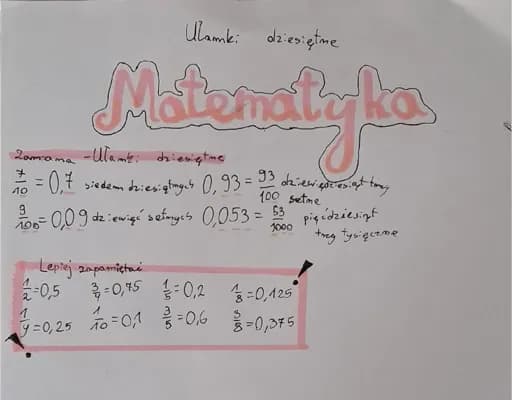 Ułamki dziesiętne
Matematyka
Zamiana - Ułamki dziesiętne
7/10 = 0,7 siedem dziesiątych 0,93 = 93/100 dziewięćdziesiąt trzy setne
9/100 = 0,09 dziewięć setnych 0,053 = 53/1000 pięćdziesiąt trzy tysięczne
Lepiej zapamiętać
1/2 = 0,5 3/4 = 0,75 1/5 = 0,2 1/8 = 0,125
1/4 = 0,25 1/10 = 0,1 3/5 = 0,6 3/8 = 0,375